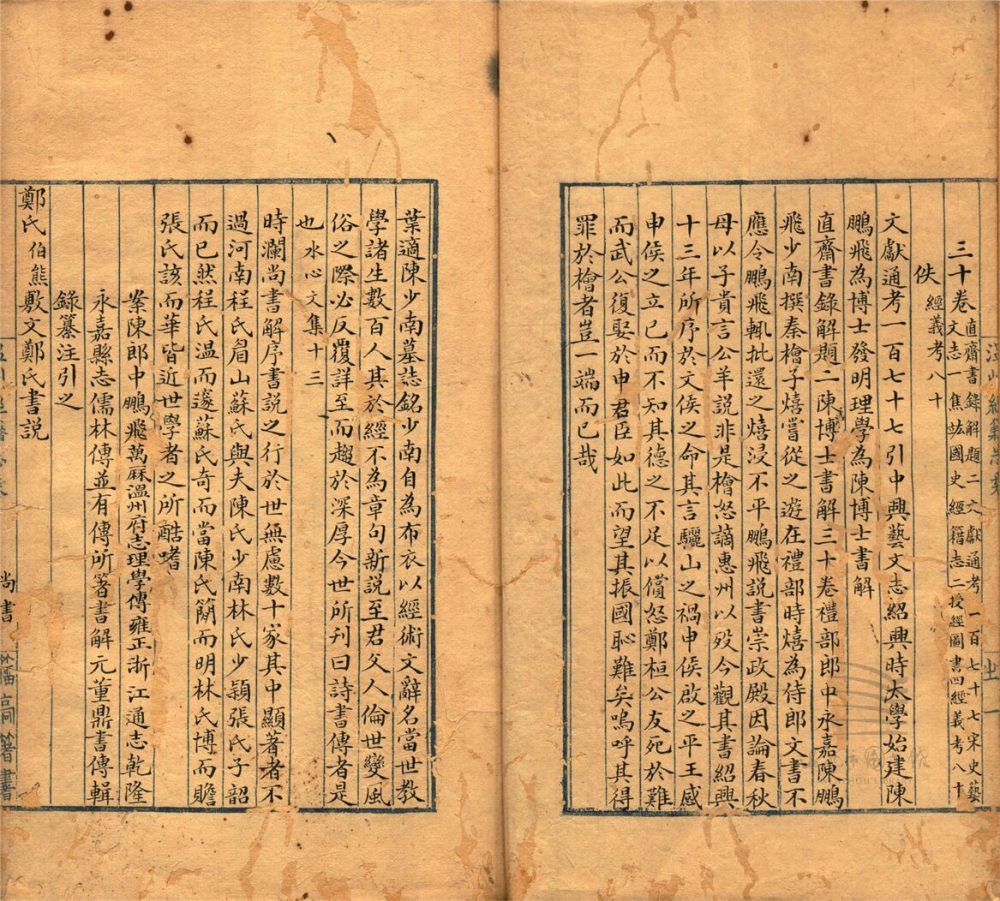 三十卷直齋書錄解題二文獻通考一百七十七宋史藝
文志一焦竑國史經籍志二授經圖書四經義考八十
佚經義考八十
文獻通考一百七十七引中興藝文志紹興時太學始建陳
鵬飛為博士發明理學為陳博士書解
直齋書錄解題二陳博士書解三十卷禮部郎中永嘉陳鵬
飛少南撰秦檜子熺嘗從之遊在禮部時熺為侍郎文書不
應令鵬飛輒批還之熺浸不平鵬飛說書崇政殿因論春秋
母以子貴言公羊說非是檜怒謫惠州以歿今觀其書紹興
十三年所序於文侯之命其言驪山之禍申侯啟之平王感
申侯之立己而不知其德之不足以償怨鄭桓公友死於難
而武公復娶於申君臣如此而望其振國恥難矣嗚呼其得
罪於檜者豈一端而已哉
葉適陳少南墓誌銘少南自為布衣以經術文辭名當世教
學諸生數百人其於經不為章句新說至君父人倫世變風
俗之際必反覆詳至而趨於深厚今世所刊曰詩書傳者是
也水心文集十三
時瀾尚書解序書說之行於世無慮數十家其中顯著者不
過河南程氏眉山蘇氏與夫陳氏少南林氏少穎張氏子韶
而已然程氏温而邃蘇氏奇而當陳氏簡而明林氏博而贍
張氏該而華皆近世學者之所酷嗜
案陳郎中鵬飛萬厤溫州府志理學傳雍正浙江通志乾隆
永嘉縣志儒林傳並有傳所箸書解元董鼎書傳輯
錄纂注引之
鄭氏伯熊敷文鄭氏書說
尚書